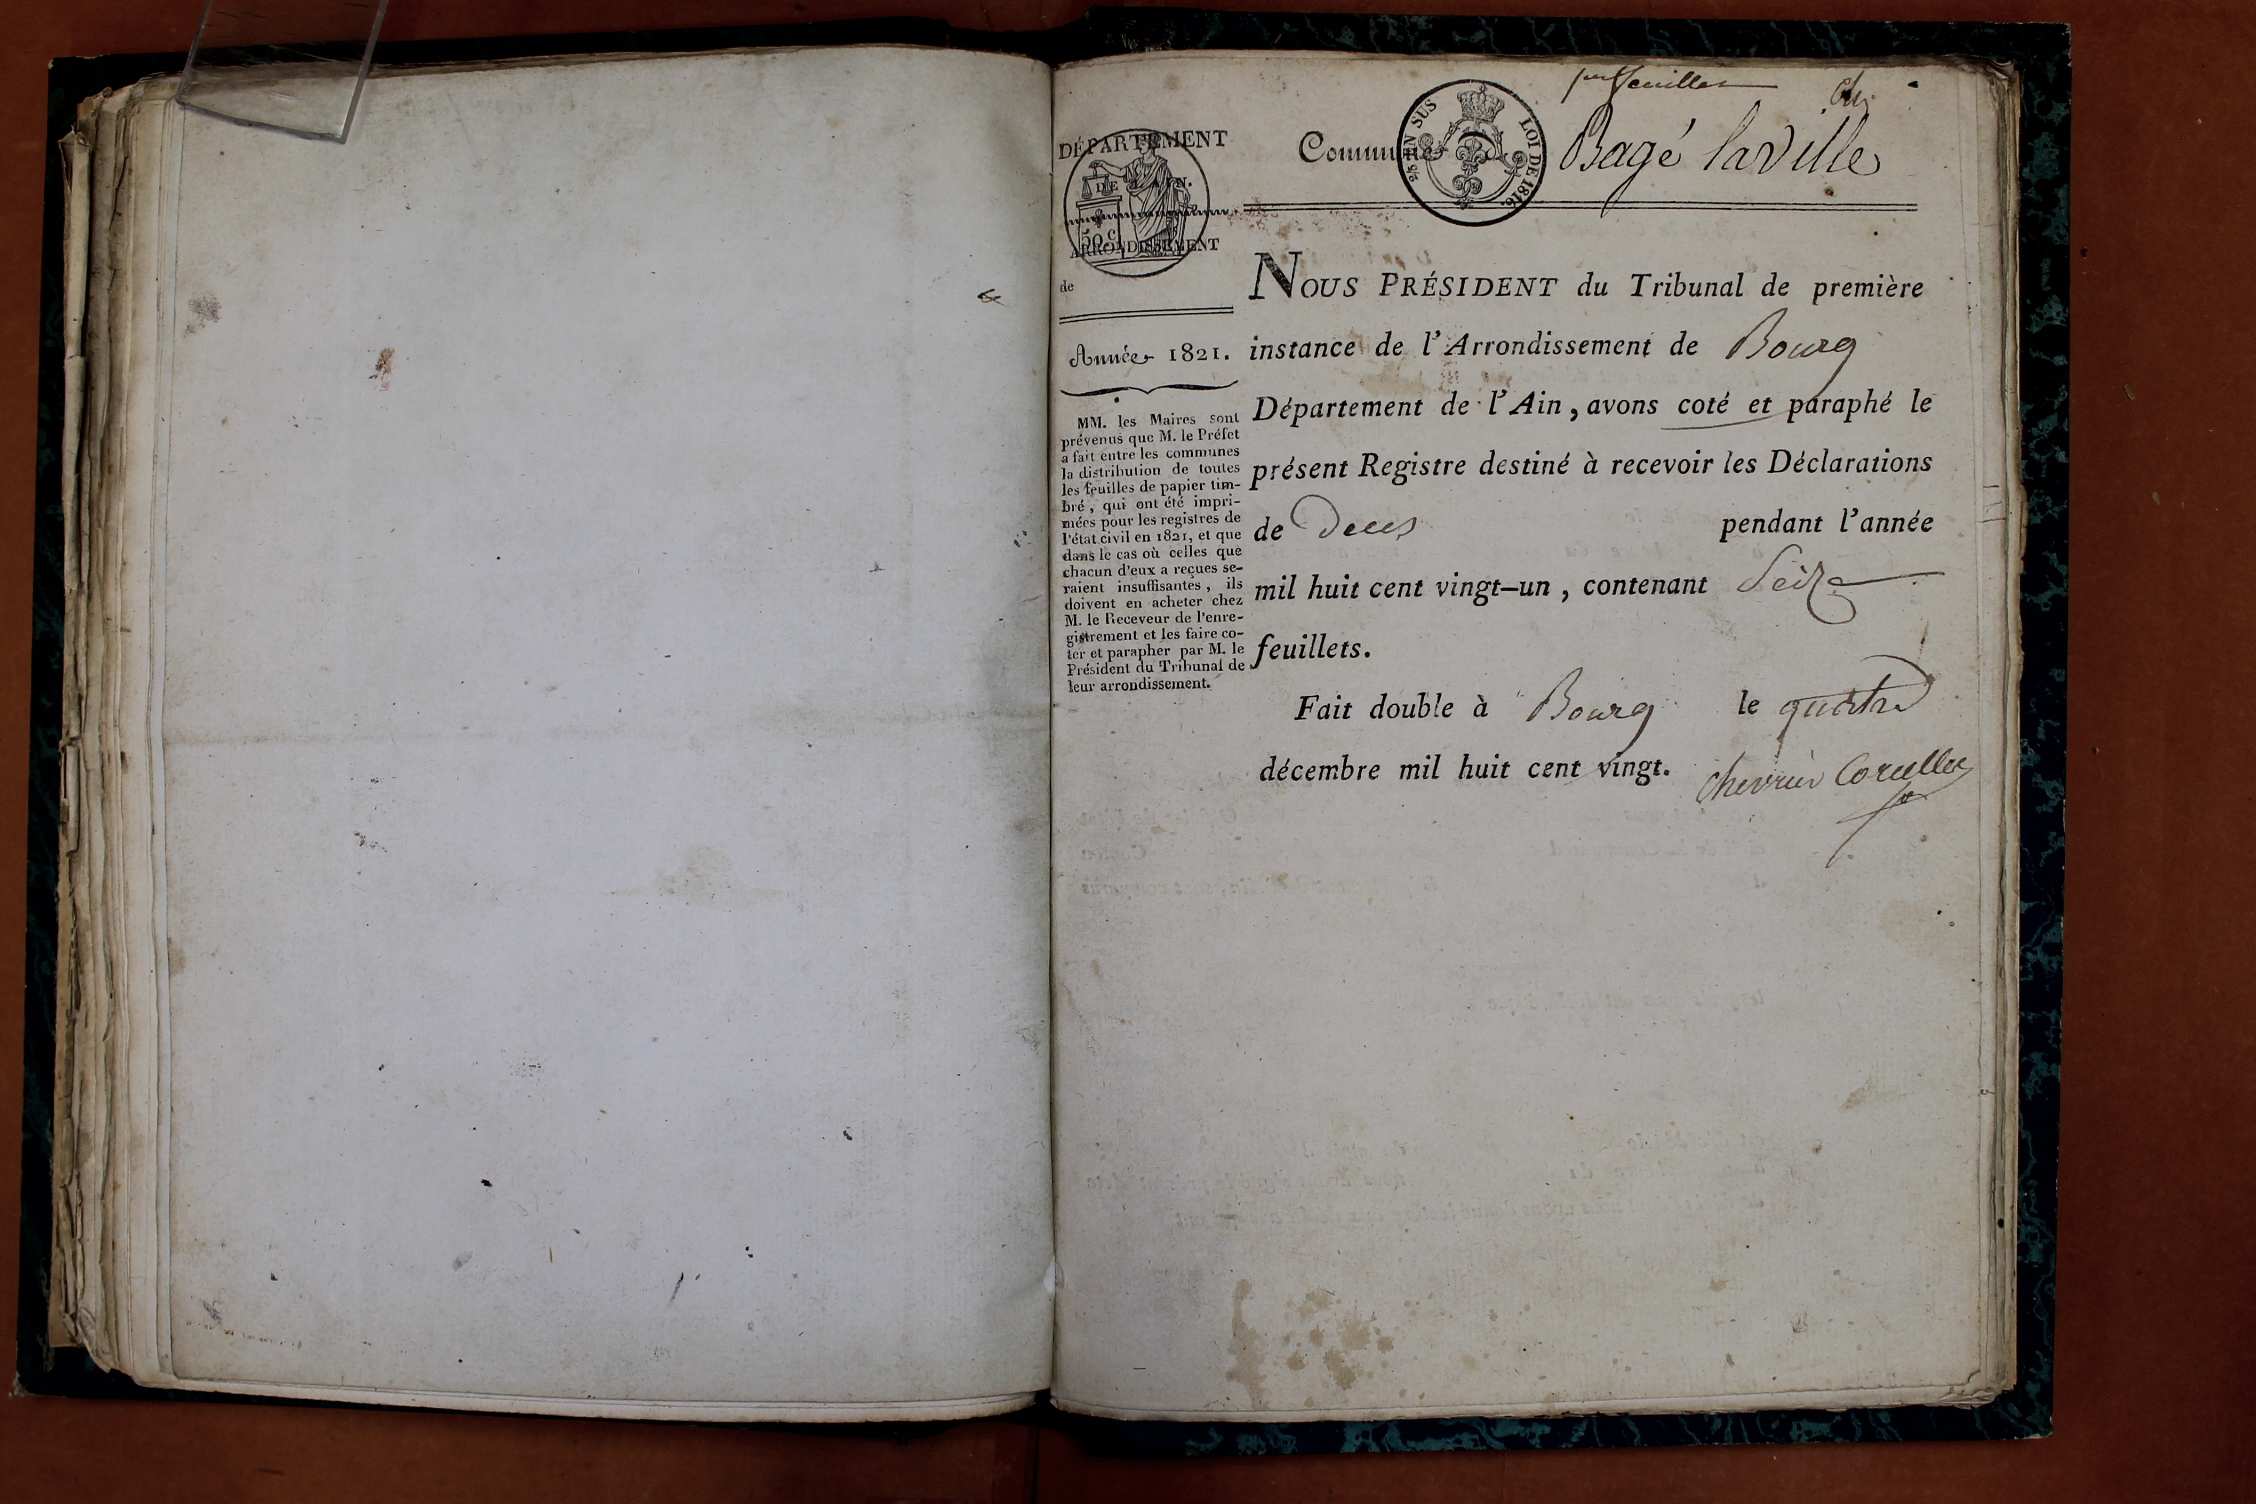 feuillet
DÉPARTEMENT
DE L'AIN.
50 c.
ARRONDISSEMENT
de
Année 1821.
MM. les Maires sont
prévenus que M. le Préfet
a fait entre les communes
la distribution de toutes
les feuilles de papier tim-
bré, qui ont été impri-
mées pour les registres de
l'état civil en 1821, et que
dans le cas où celles que
chacun d'eux a reçues se-
raient insuffisantes, ils
doivent en acheter chez
M. le Receveur de l'enre-
gistrement et les faire co-
ter et parapher par M. le
Président du Tribunal de
leur arrondissement.
Commune
EN SUS LOI DE 1816.
Bagé la ville
NOUS PRÉSIDENT du Tribunal de première
instance de l'Arrondissement de Bourg
Département de l'Ain, avons coté et paraphé le
présent Registre destiné à recevoir les Déclarations
de Deces pendant l'année
mil huit cent vingt-un, contenant Seize
feuillets.
Fait double à Bourg le quatre
décembre mil huit cent vingt.
Chevrier Corcelles